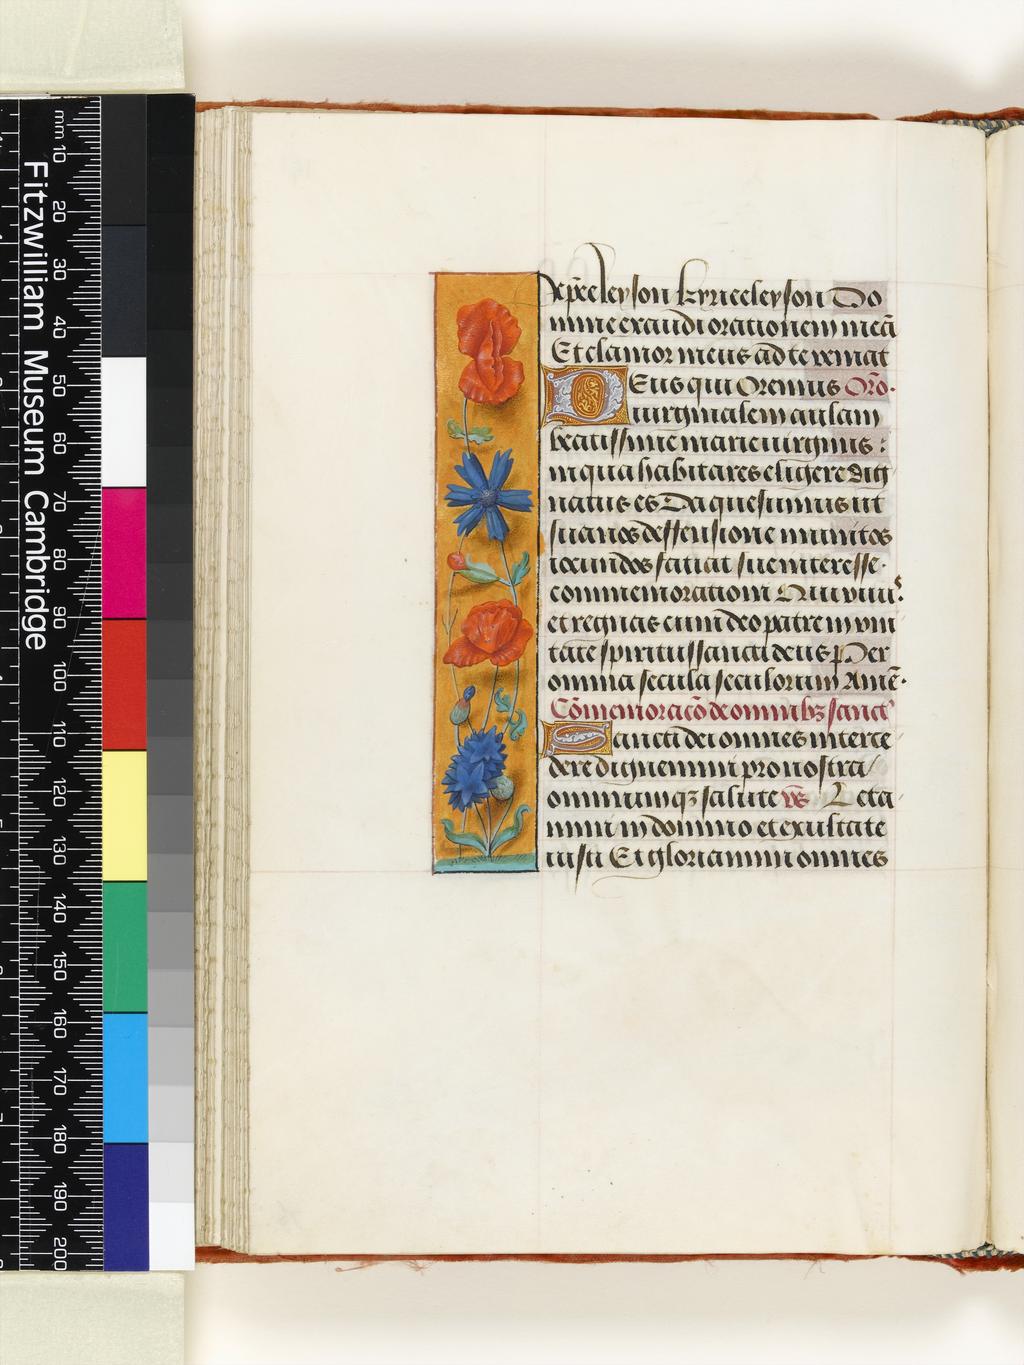 Fitzwilliam Museum Cambridge
mm 10 20 30 40 50 60 70 80 90 100 110 120 130 140 150 160 170 180 190 200
xp̄eeleyson kyrieeleyson Do
mine exaudi orationem meā
Et clamor meus ad te veniat
Deus qui Oremus Orō.
virginalem aulam
beatissime marie virginis :
in qua habitares eligere dig
natus es Da quesumus ut
sua nos deffensione munitos
iocundos faciat sue interesse.
commemorationi Qui viuis
et regnas cum deo patre in vni
tate spiritussancti deus Per
omnia secula seculorum Amē.
Cōmemoracō de omnibꝫ sanct
Sancti dei omnes interce
dere dignemini pro nostra
omniumqꝫ salute vs̄ Leta
mini in domino et exultate
iusti Et gloriamini omnes